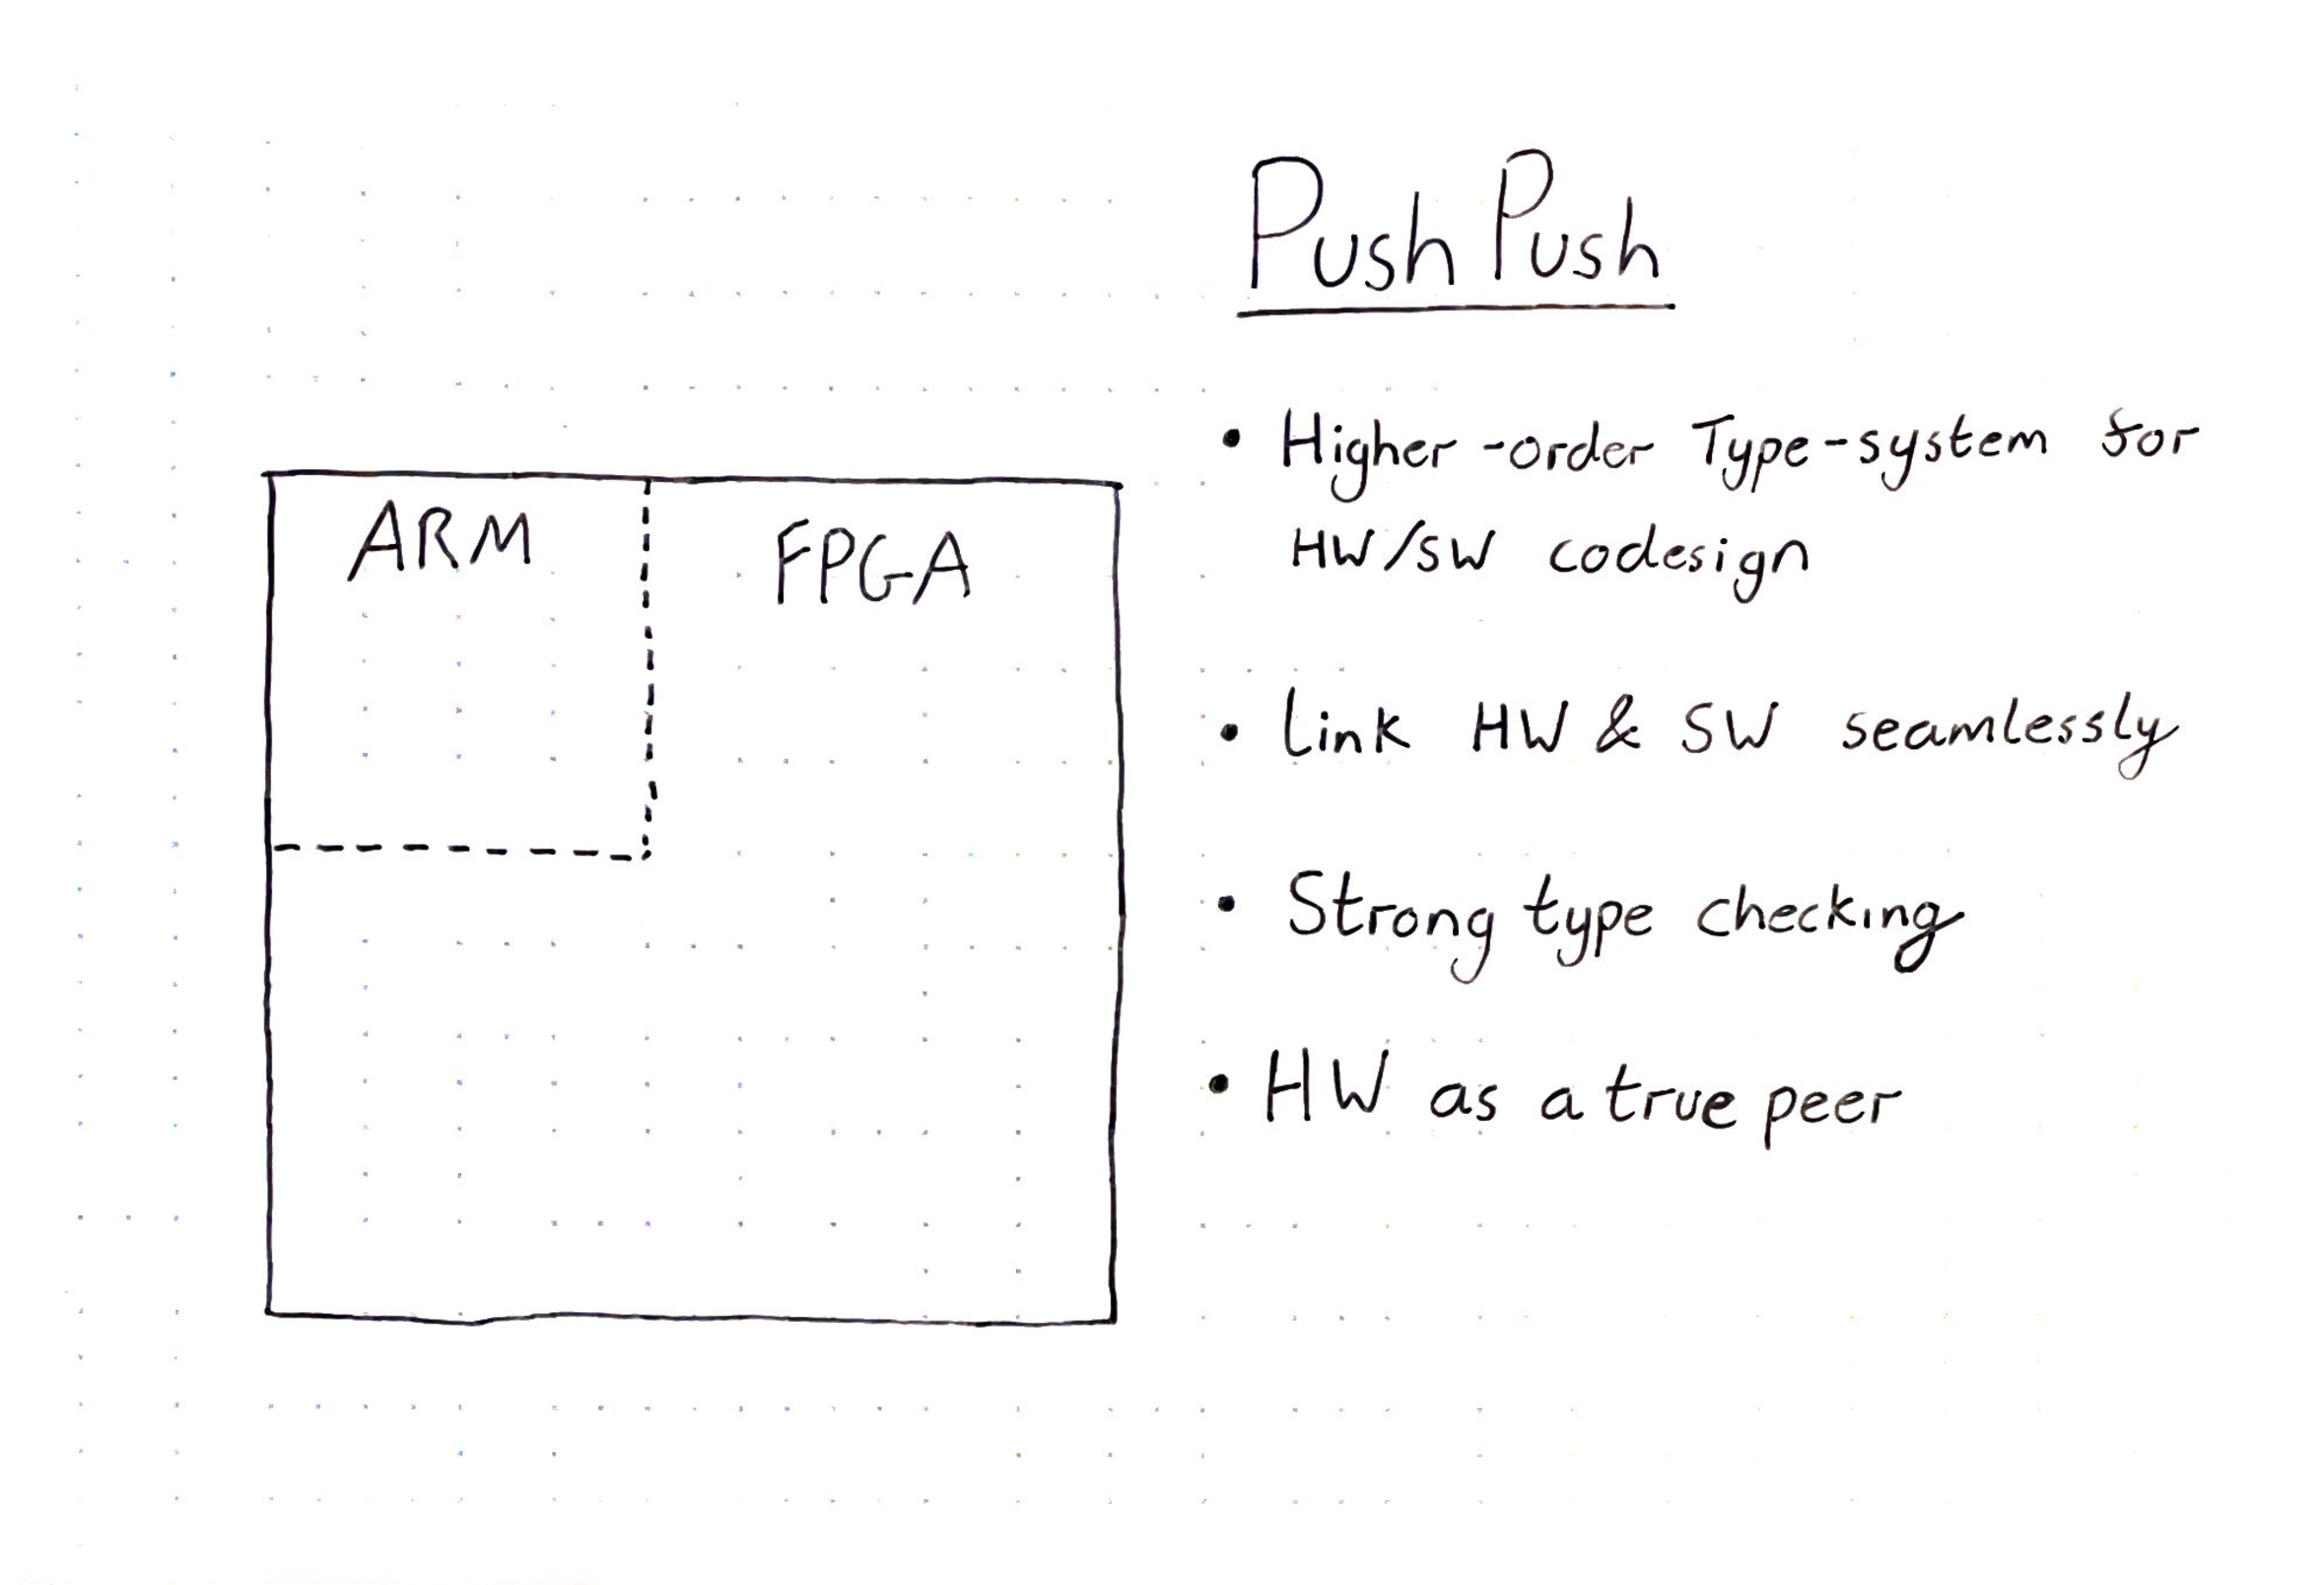 PushPush
ARM
FPGA
• Higher-order Type-system for
HW/SW codesign
• Link HW & SW seamlessly
• Strong type checking
• HW as a true peer